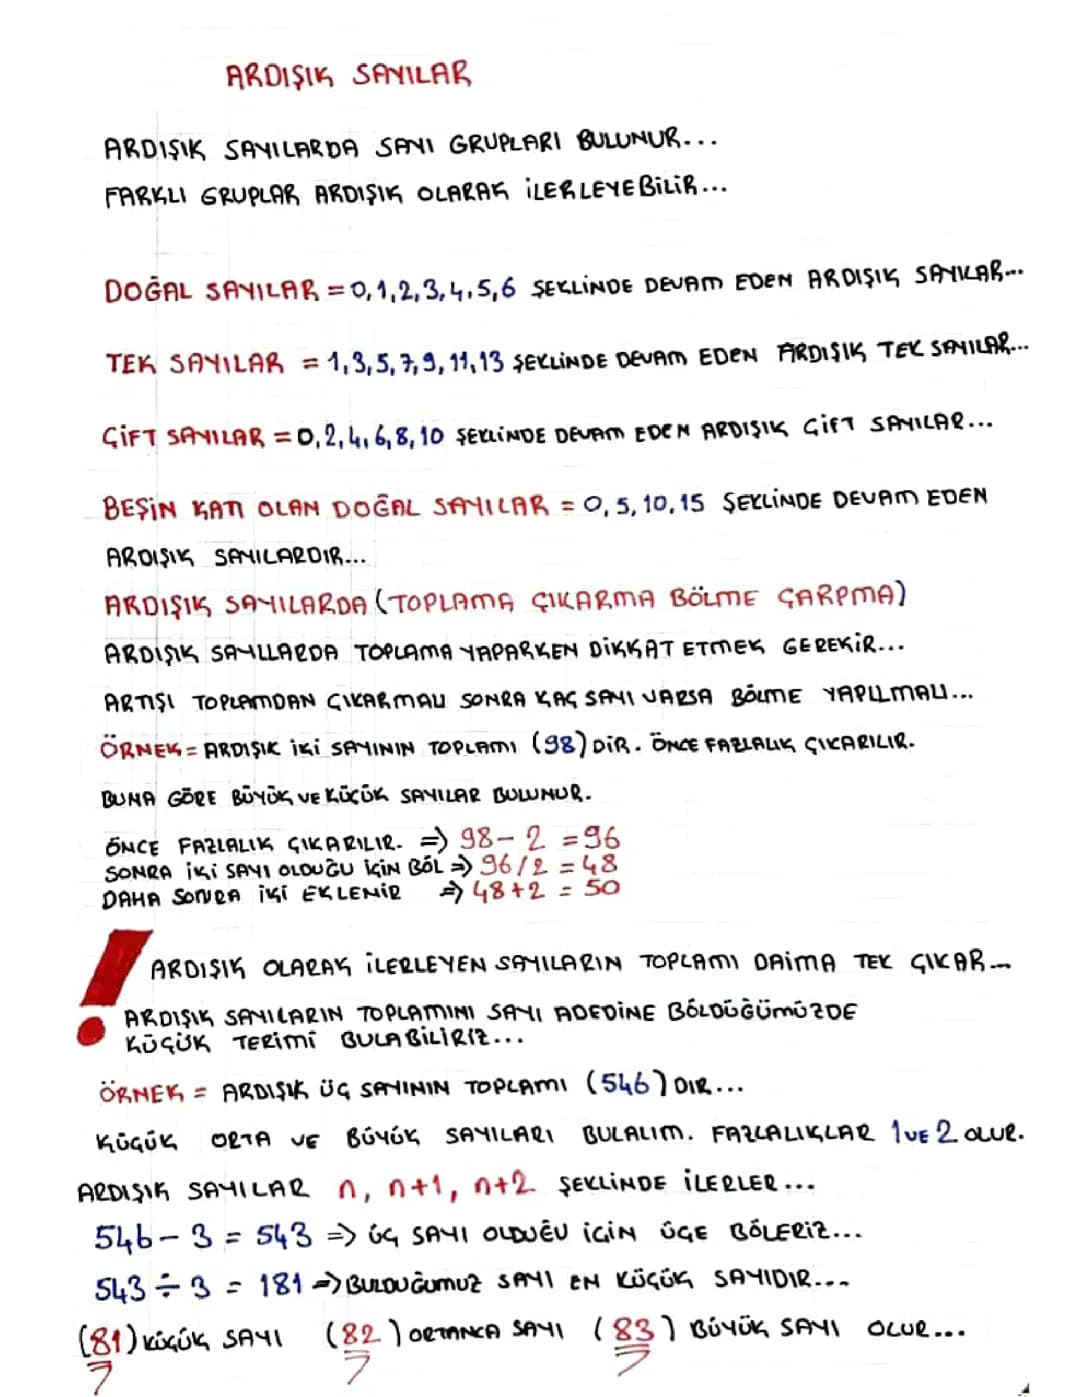 ARDIŞIK SAYILAR
ARDIŞIK SAYILARDA SAYI GRUPLARI BULUNUR...
FARKLI GRUPLAR ARDIŞIK OLARAK İLERLEYEBİLİR...
DOĞAL SAYILAR = 0,1,2,3,4,5,6 ŞEKLİNDE DEVAM EDEN ARDIŞIK SAYILAR...
TEK SAYILAR = 1,3,5,7,9,11,13 ŞEKLİNDE DEVAM EDEN ARDIŞIK TEK SAYILAR...
ÇİFT SAYILAR = 0,2,4,6,8,10 ŞEKLİNDE DEVAM EDEN ARDIŞIK ÇİFT SAYILAR...
BEŞİN KATI OLAN DOĞAL SAYILAR = 0,5,10,15 ŞEKLİNDE DEVAM EDEN
ARDIŞIK SAYILARDIR...
ARDIŞIK SAYILARDA (TOPLAMA ÇIKARMA BÖLME ÇARPMA)
ARDIŞIK SAYLLARDA TOPLAMA YAPARKEN DİKKAT ETMEK GEREKİR...
ARTIŞI TOPLAMDAN ÇIKARMALI SONRA KAÇ SAYI VARSA BÖLME YAPILMALI...
ÖRNEK = ARDIŞIK İKİ SAYININ TOPLAMI (98) DİR. ÖNCE FAZLALIK ÇIKARILIR.
BUNA GÖRE BÜYÜK VE KÜÇÜK SAYILAR BULUNUR.
ÖNCE FAZLALIK ÇIKARILIR. => 98 - 2 = 96
SONRA İKİ SAYI OLDUĞU İÇİN BÖL => 96/2 = 48
DAHA SONRA İKİ EKLENİR => 48+2 = 50
! ARDIŞIK OLARAK İLERLEYEN SAYILARIN TOPLAMI DAİMA TEK ÇIKAR...
ARDIŞIK SAYILARIN TOPLAMINI SAYI ADEDİNE BÖLDÜĞÜMÜZDE
KÜÇÜK TERİMİ BULABİLİRİZ...
ÖRNEK = ARDIŞIK ÜÇ SAYININ TOPLAMI (546) DIR...
KÜÇÜK ORTA VE BÜYÜK SAYILARI BULALIM. FAZLALIKLAR 1 VE 2 OLUR.
ARDIŞIK SAYILAR n, n+1, n+2 ŞEKLİNDE İLERLER...
546 - 3 = 543 => ÜÇ SAYI OLDUĞU İÇİN ÜÇE BÖLERİZ...
543 ÷ 3 = 181 => BULDUĞUMUZ SAYI EN KÜÇÜK SAYIDIR...
(81) KÜÇÜK SAYI (82) ORTANCA SAYI (83) BÜYÜK SAYI OLUR...